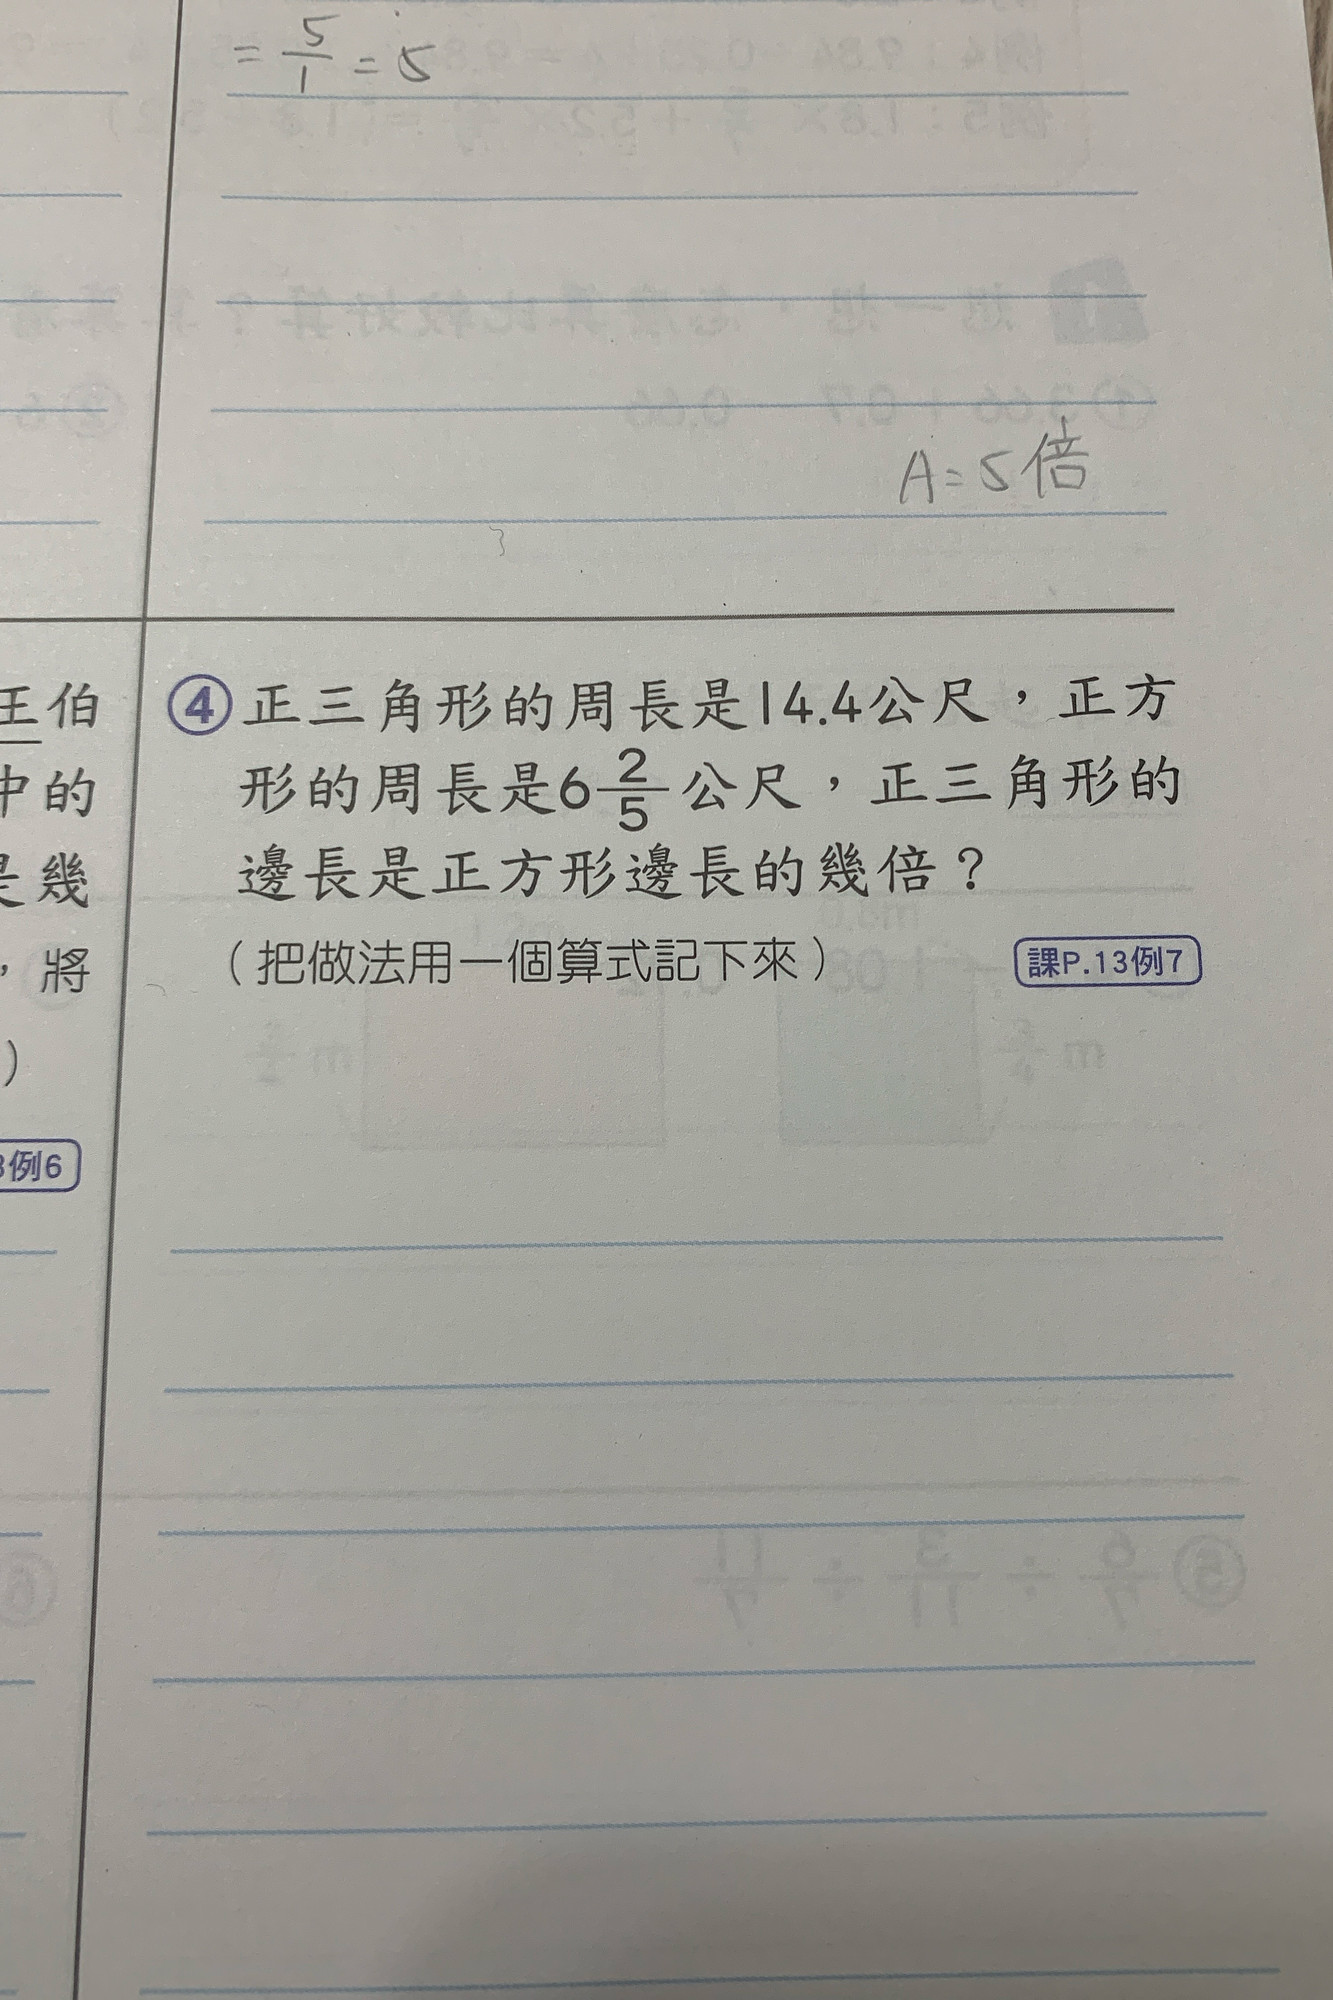 = 5/1 = 5
A = 5倍
王伯
中的
是幾
，將
）
例6
④正三角形的周長是14.4公尺，正方
形的周長是6 2/5 公尺，正三角形的
邊長是正方形邊長的幾倍？
（把做法用一個算式記下來）
課P.13例7